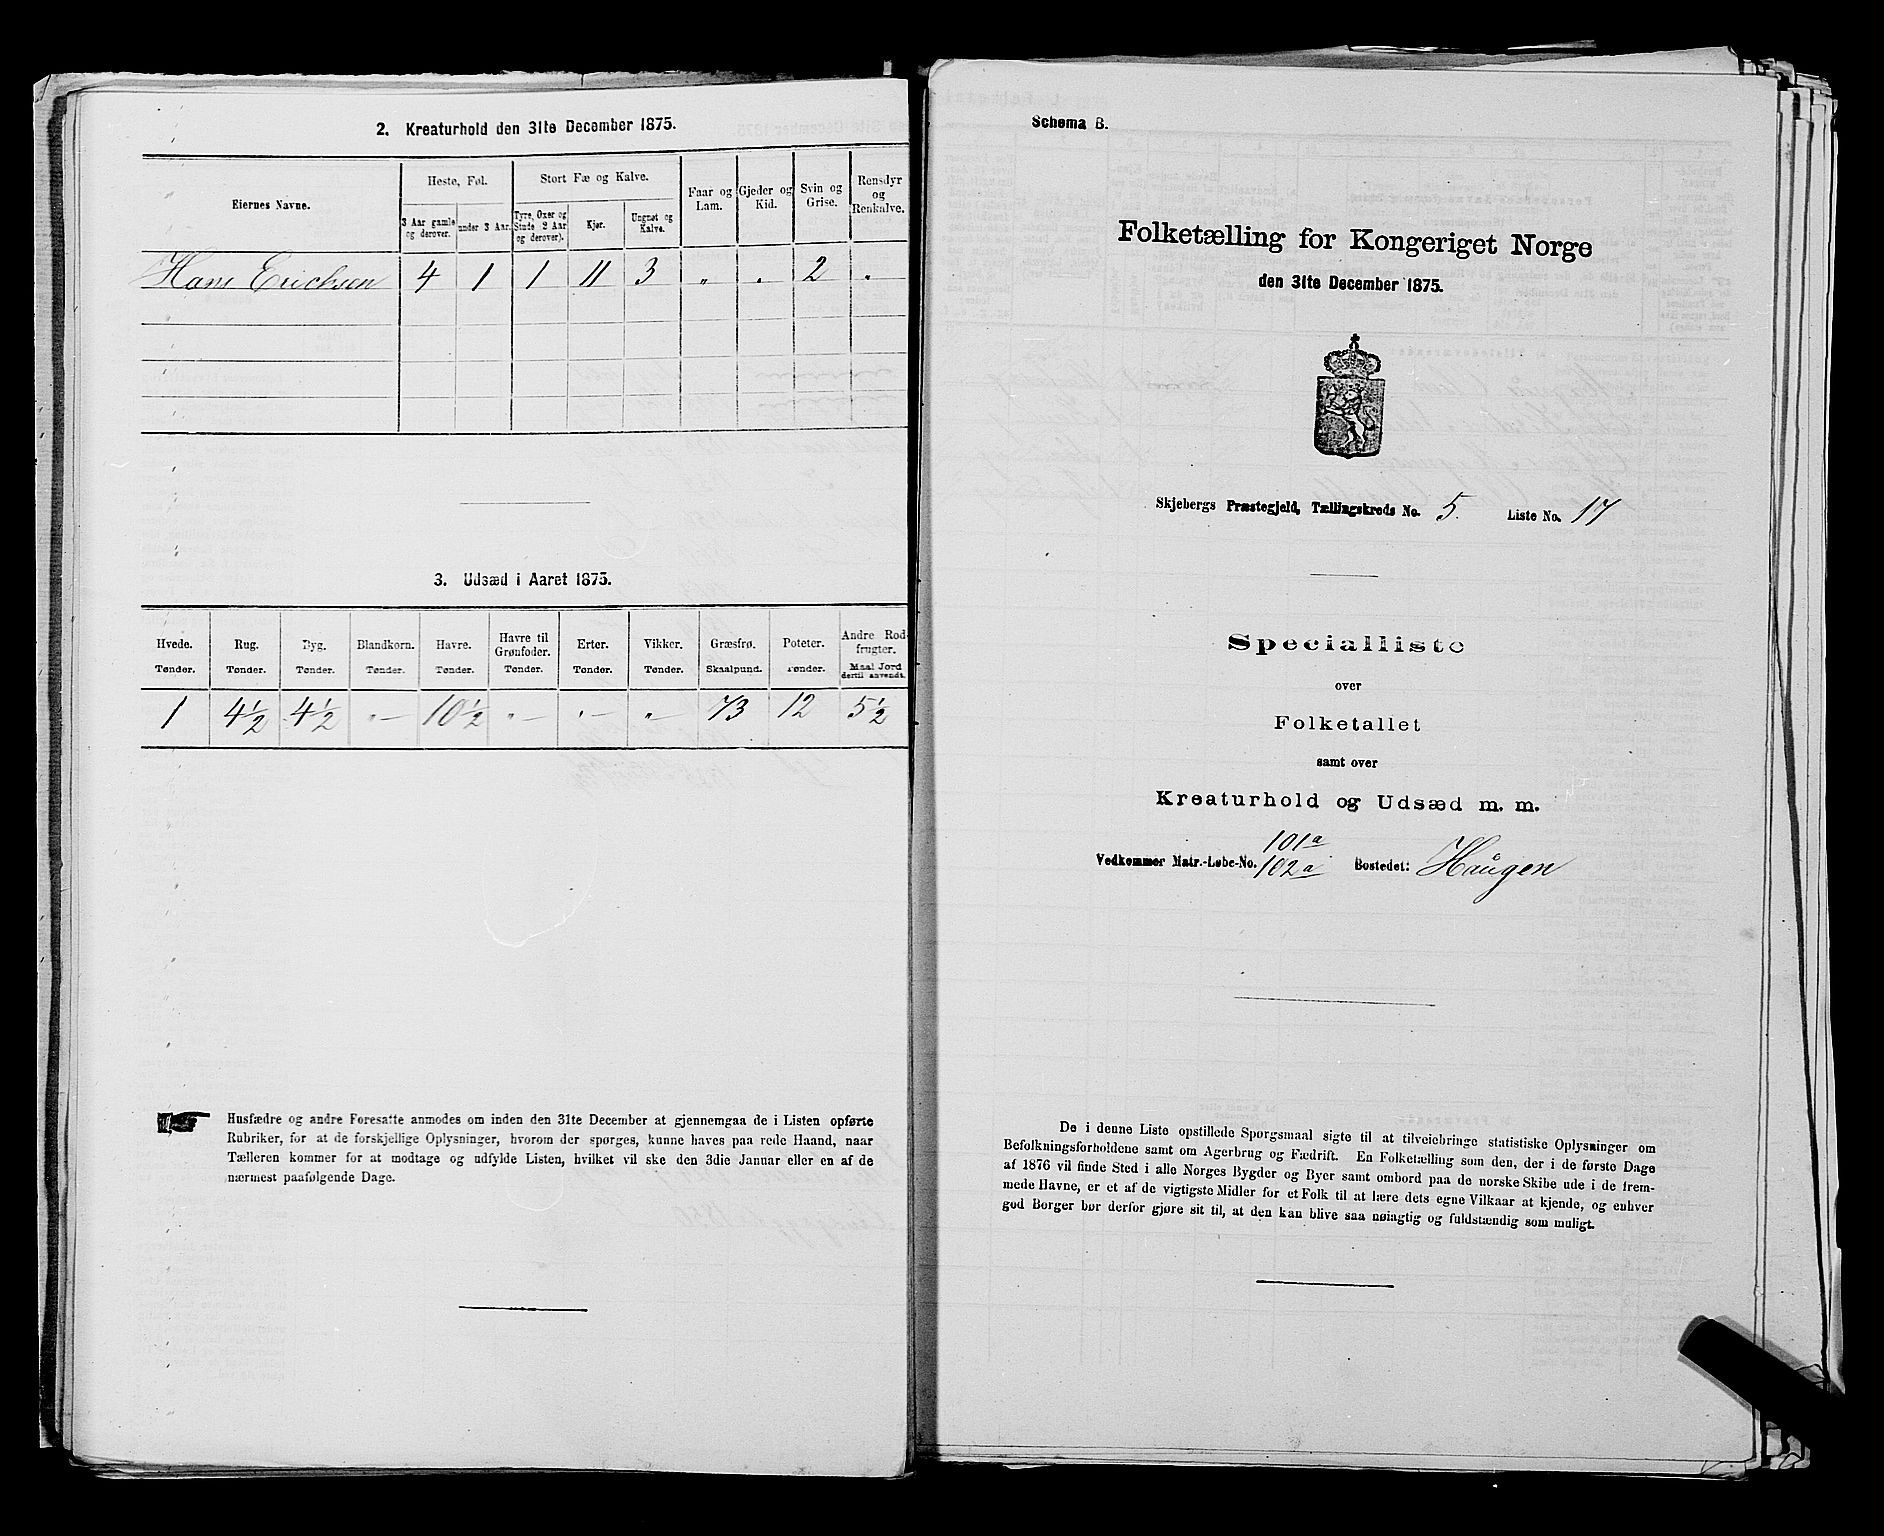 2. Kreaturhold den 31te December 1875.
Eiernes Navne.
Heste, Føl.
Stort Fæ og Kalve.
Faar og Lam.
Gjeder og Kid.
Svin og Grise.
Rensdyr og Renkalve.
3 Aar gamle og derover.
under 3 Aar.
Tyre, Oxer og Stude 2 Aar og derover).
Kjør.
Ungnøt og Kalve.
Hans Ericksen 4 1 1 11 3 „ „ 2 „
3. Udsæd i Aaret 1875.
Hvede. Rug. Byg. Blandkorn. Havre. Havre til Grønfoder. Erter. Vikker. Græsfrø. Poteter. Andre Rodfrugter.
Tønder. Tønder. Tønder. Tønder. Tønder. Tønder. Tønder. Tønder. Skaalpund. Tønder. Maal Jord dertil anvendt.
1 4½ 4½ „— 10½ „— „— „— 73 12 5½
Husfædre og andre Foresatte anmodes om inden den 31te December at gjennemgaa de i Listen opførte
Rubriker, for at de forskjellige Oplysninger, hvorom der spørges, kunne haves paa rede Haand, naar
Tælleren kommer for at modtage og udfylde Listen, hvilket vil ske den 3die Januar eller en af de
nærmest paafølgende Dage.
Schema B.
Folketælling for Kongeriget Norge
den 31te December 1875.
Skjebergs Præstegjeld, Tællingskreds No. 5. Liste No. 17
Specialliste
over
Folketallet
samt over
Kreaturhold og Udsæd m. m.
101a
Vedkommer Matr.-Løbe-No. 102a Bostedet: Haugen
De i denne Liste opstillede Spørgsmaal sigte til at tilveiebringe statistiske Oplysninger om
Befolkningsforholdene samt om Agerbrug og Fædrift. En Folketælling som den, der i de første Dage
af 1876 vil finde Sted i alle Norges Bygder og Byer samt ombord paa de norske Skibe ude i de frem-
mede Havne, er et af de vigtigste Midler for et Folk til at lære dets egne Vilkaar at kjende, og enhver
god Borger bør derfor gjøre sit til, at den kan blive saa nøiagtig og fuldstændig som muligt.